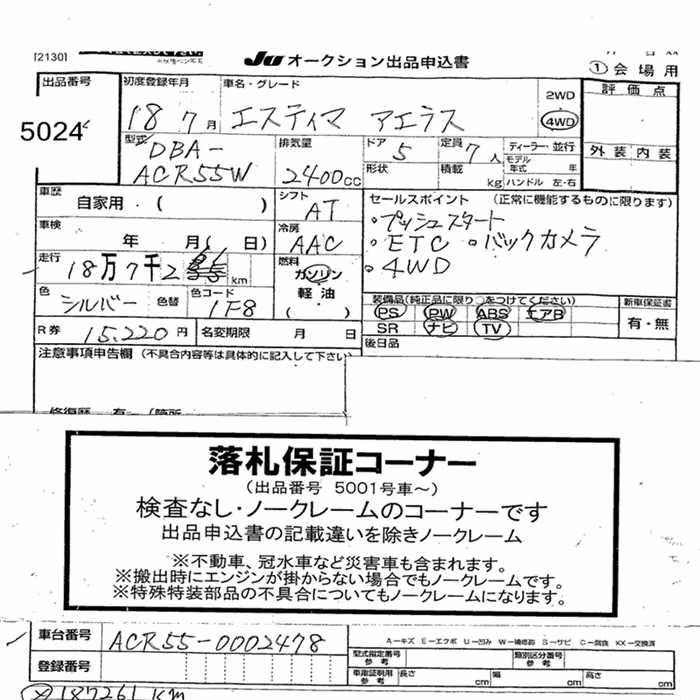 [2130]
JU オークション出品申込書
①会場用
出品番号
5024
初度登録年月
18 7月
車名・グレード
エスティマ アエラス
2WD
4WD
評価点
型式
DBA-
ACR55W
排気量
2400cc
ドア
5
定員
7人
ディーラー・並行
モデル年式 年
外装 内装
形状
積載
kg
ハンドル 左・右
車歴
自家用・( )
シフト
AT
セールスポイント (正常に機能するものに限ります)
・プッシュスタート
・ETC ・バックカメラ
・4WD
車検
年 月( 日)
冷房
AAC
走行
18万7千2
km
燃料
ガソリン
軽油
( )
色
シルバー
色替
色コード
1F8
装備品(純正品に限り○をつけてください)
PS PW ABS エアB
SR ナビ TV
新車保証書
有・無
R券
15,220円
名変期限 月 日
後日品
注意事項申告欄 (不具合内容等は具体的に記入して下さい)
落札保証コーナー
(出品番号 5001号車～)
検査なし・ノークレームのコーナーです
出品申込書の記載違いを除きノークレーム
※不動車、冠水車など災害車も含まれます。
※搬出時にエンジンが掛からない場合でもノークレームです。
※特殊特装部品の不具合についてもノークレームになります。
車台番号
ACR55-0002478
A－キズ E－エクボ U－凹み W－補修跡 S－サビ C－腐食 XX－交換済
登録番号
型式指定番号
参考
類別区分番号
参考
車庫証明用
参考
長さ
cm
幅
cm
高さ
cm
187261 km